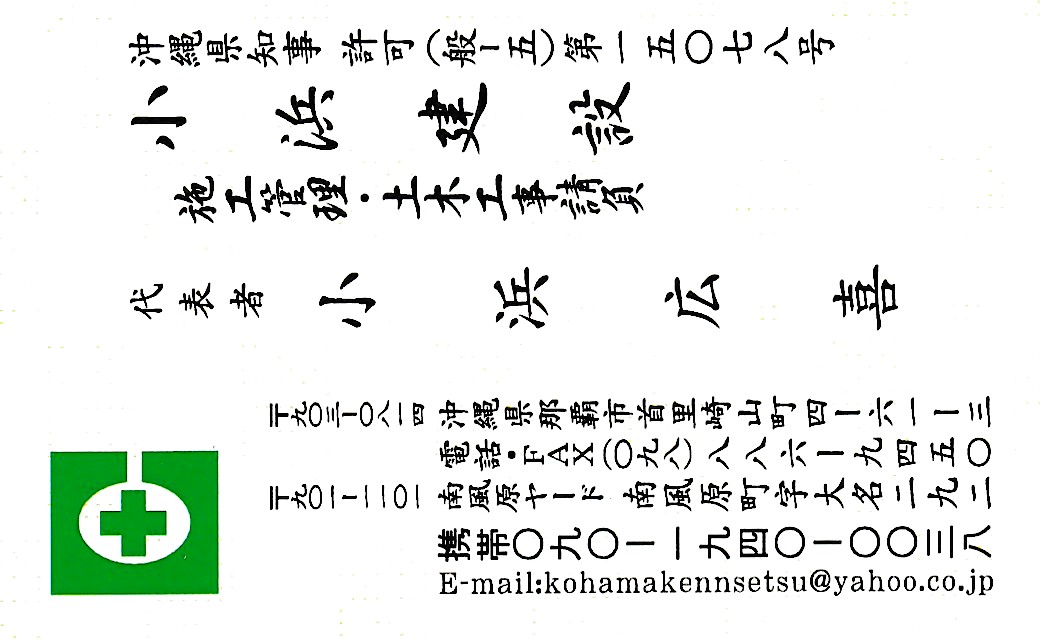 沖縄県知事 許可(般ー五)第一五〇七八号
小浜建設
施工管理・土木工事請負
代表者 小浜広喜
〒九〇三ー〇八一四 沖縄県那覇市首里崎山町四ー六一ー三
電話・FAX(〇九八)八八六ー九四五〇
〒九〇一ー一一〇一 南風原ヤード 南風原町字大名二九二
携帯〇九〇ー一九四〇ー〇〇三八
E-mail:kohamakennsetsu@yahoo.co.jp